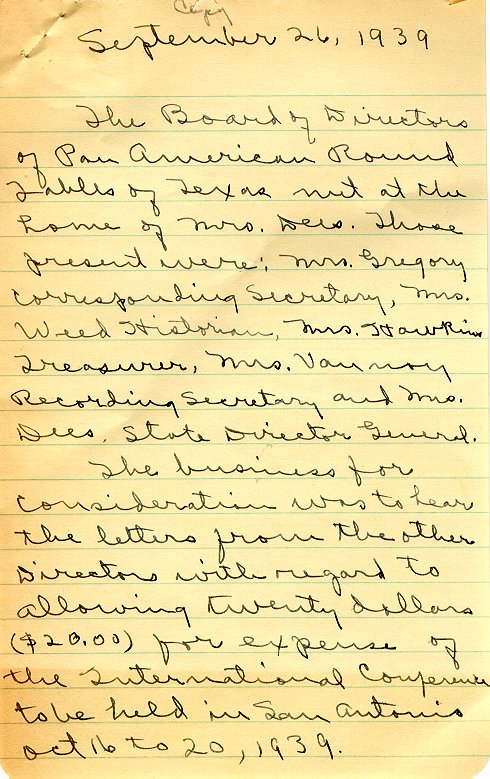 Copy
September 26, 1939
The Board of Directors
of Pan American Round
Tables of Texas met at the
home of Mrs. Dees. Those
present were; Mrs. Gregory
corresponding Secretary, Mrs.
Weed Historian, Mrs. Hawkins
Treasurer, Mrs. Vannoy
Recording Secretary and Mrs.
Dees, State Director General.
The business for
consideration was to hear
the letters from the other
Directors with regard to
allowing twenty dollars
($20.00) for expense of
the International Conference
to be held in San Antonio
Oct 16 to 20, 1939.